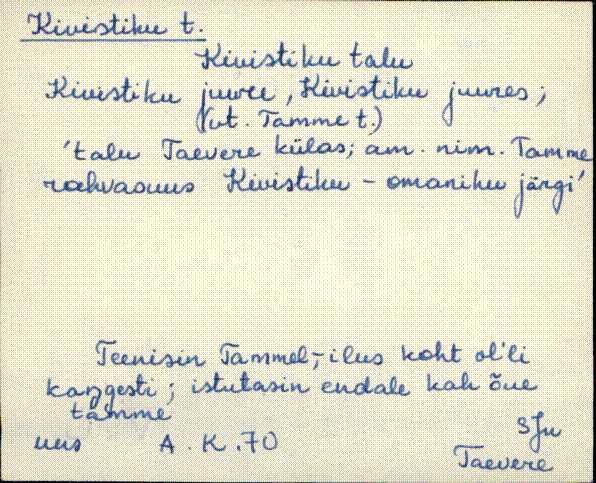 Kivistiku t.
Kivistiku talu
Kivistiku juure, Kivistiku juures;
(vt. Tamme t.)
'talu Taevere külas; am. nim. Tamme
rahvasuus Kivistiku - omaniku järgi'
Teenisin Tammel, - ilus koht ol'li
kangesti; istutasin endale kah õue
tamme
uus A. K. 70 SJn
Taevere